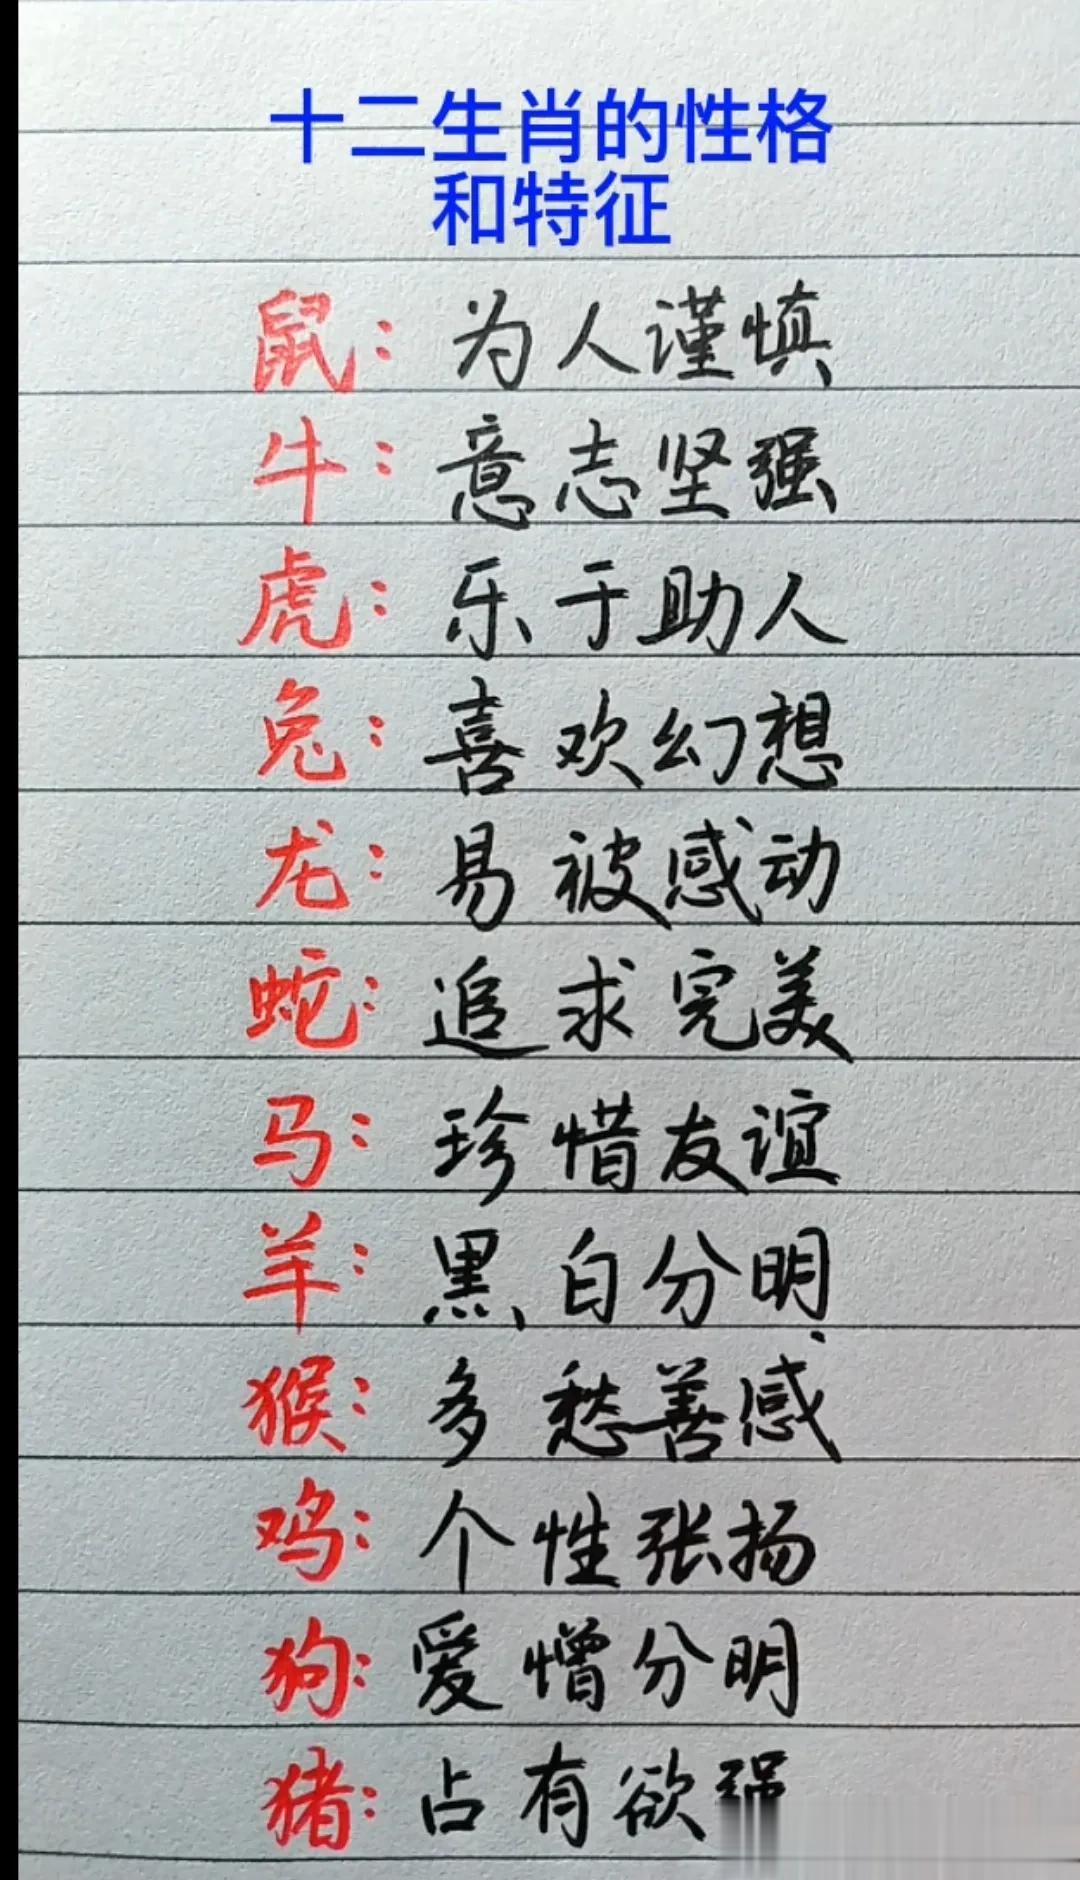 十二生肖的性格
和特征
鼠：为人谨慎
牛：意志坚强
虎：乐于助人
兔：喜欢幻想
龙：易被感动
蛇：追求完美
马：珍惜友谊
羊：黑白分明
猴：多愁善感
鸡：个性张扬
狗：爱憎分明
猪：占有欲强